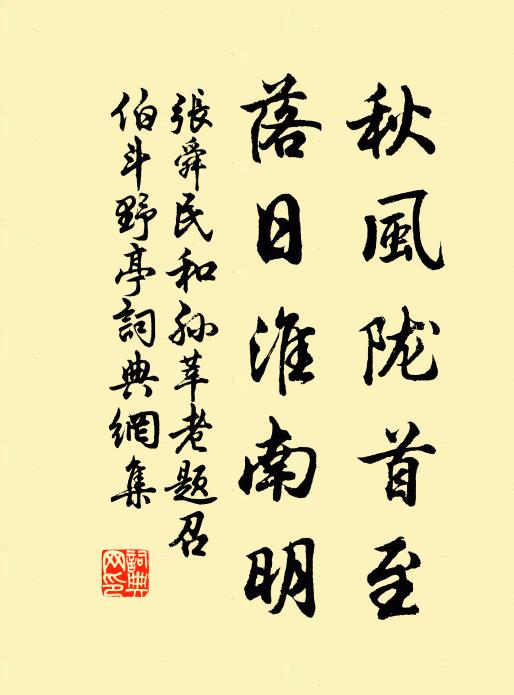 秋風陇首至
落日淮南明
張舜民和孙莘老題召
伯斗野亭詞典網集
詞典网印